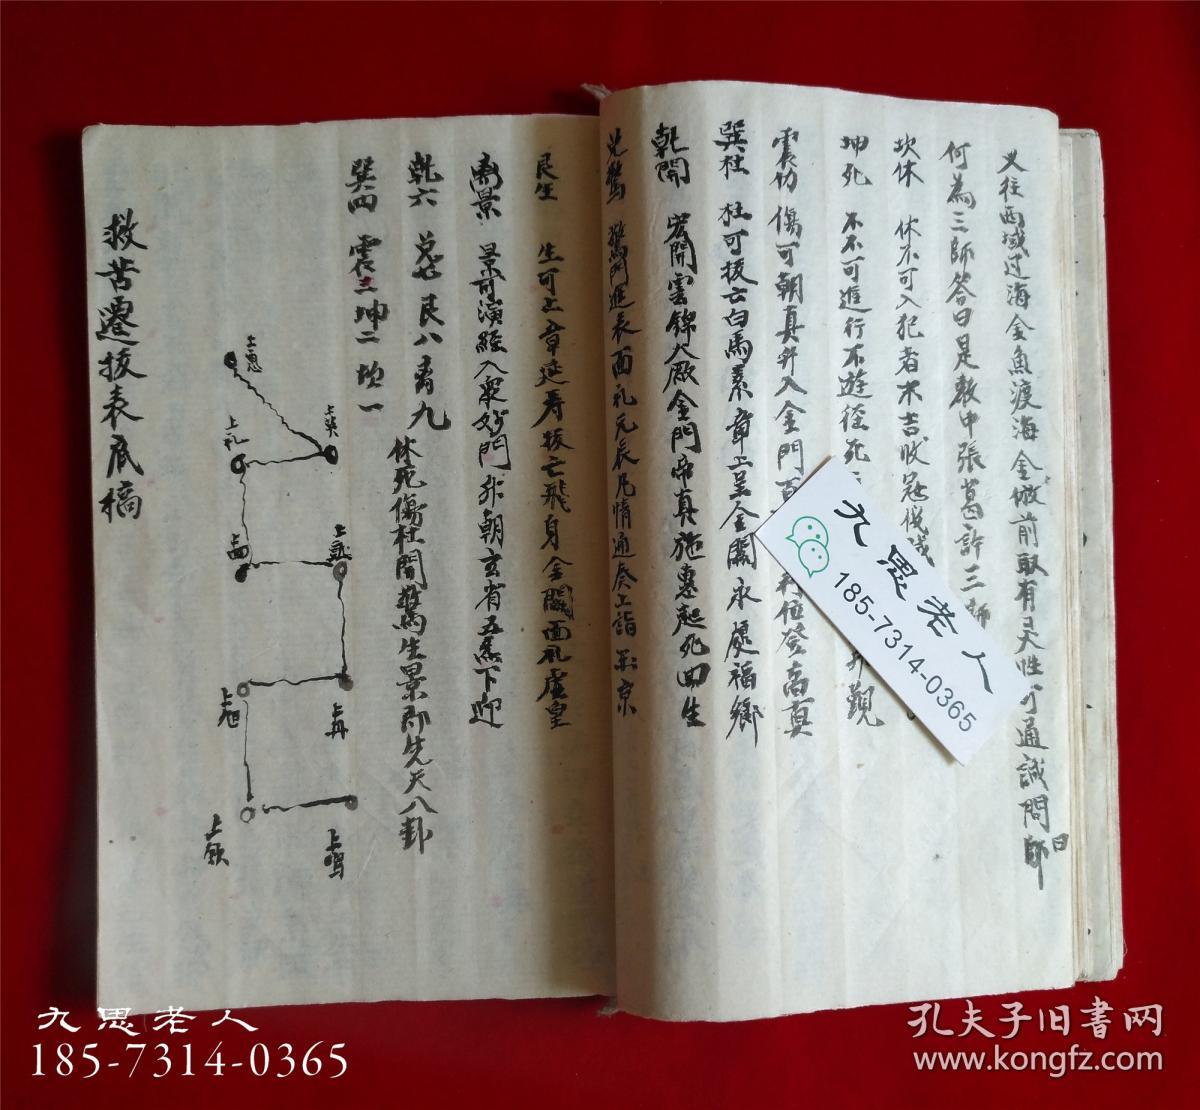 又往西域过海金魚渡海金城前取有灵性可通誠問師曰
何為三師答曰是教中張葛許三師
坎休 休不可入犯者不吉收冠伐
坤死 不不可進行不遊径死 觀
震傷 傷可朝真并入金門 位登高真
巽杜 杜可拔亡白馬素章上呈金闕永處福鄉
乾開 宏開雲錦大厰金門帝真施惠起死回生
兑驚 驚門進表面礼元辰凡情通奏上詣玉京
艮生 生可上章延寿拔亡飛身金闕面礼虚皇
离景 景可演經入衆妙門升朝玄省五炁下迎
乾六 兑七 艮八 离九
巽四 震三 坤二 坎一
休死傷杜開驚生景即先天八卦
上惠
上礼
上旭
上領
救苦遷拔表底稿
九思老人
185-7314-0365
九思老人
185-7314-0365
孔夫子旧书网
www.kongfz.com